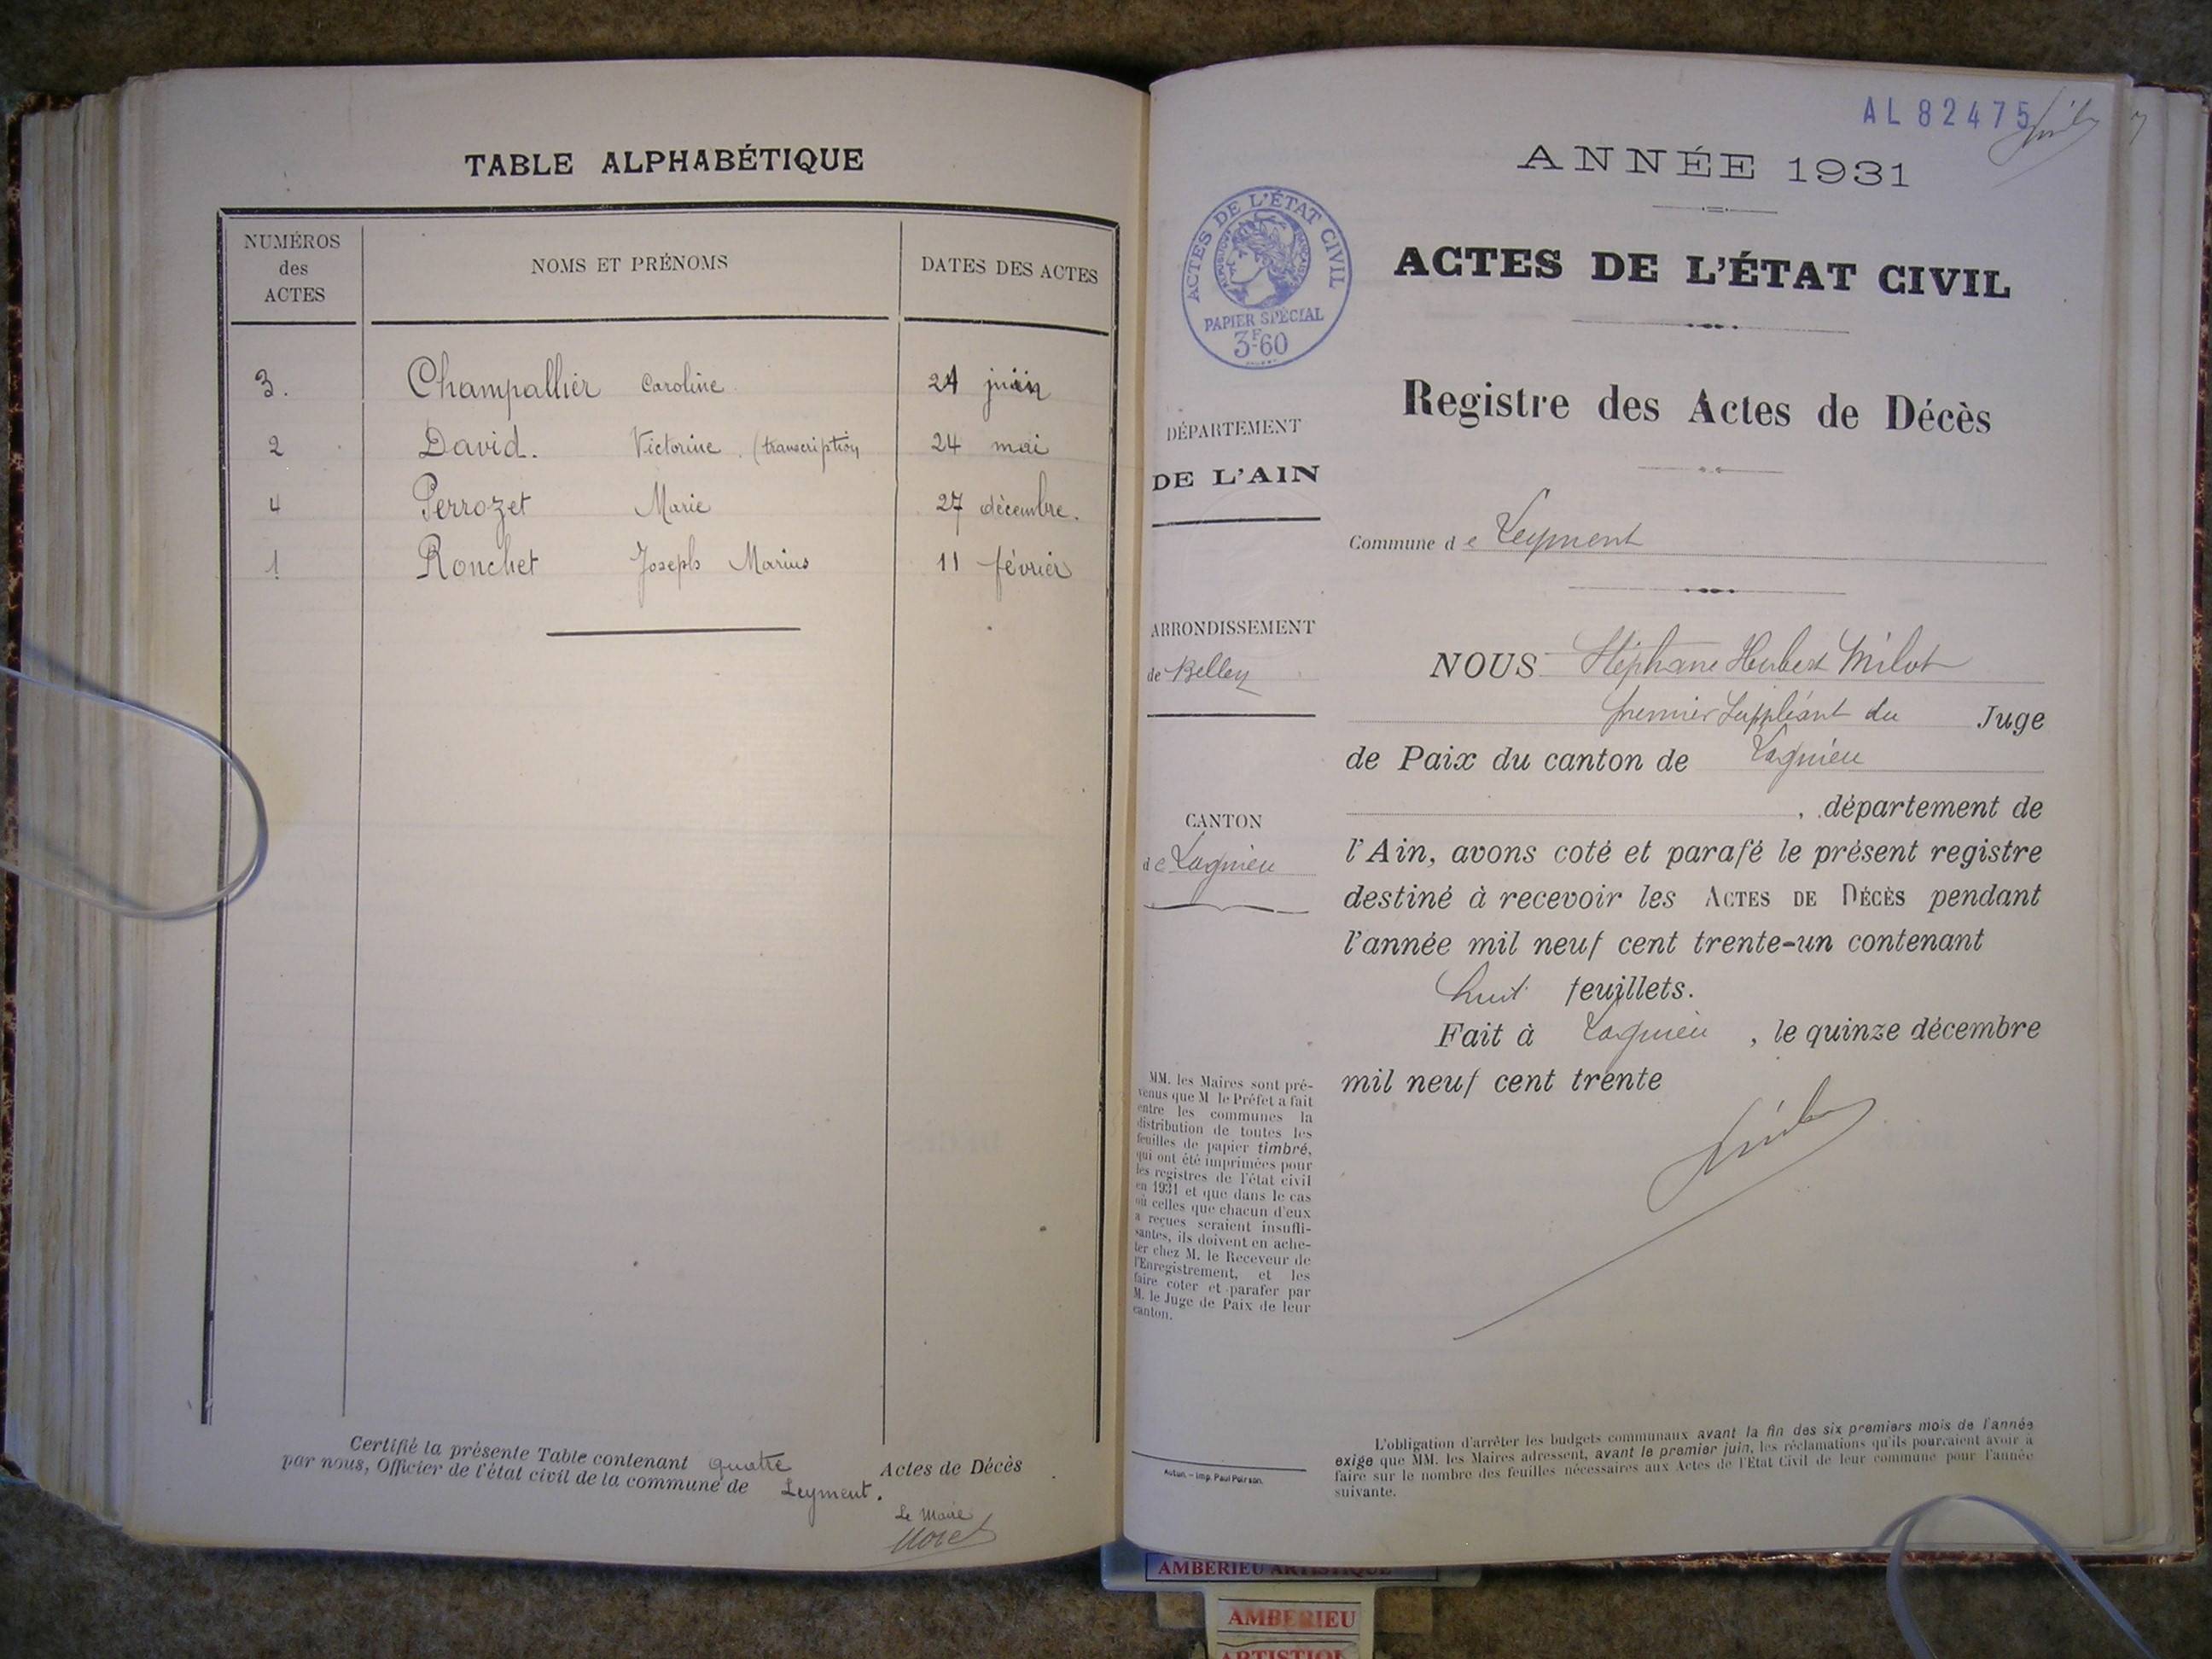 TABLE ALPHABÉTIQUE
NUMÉROS des ACTES
NOMS ET PRÉNOMS
DATES DES ACTES
3. Champallier Caroline. 24 juin
2 David. Victorine. (transcription 24 mai
4 Perrozet Marie 27 décembre.
1 Ronchet Joseph Marius 11 février
Certifié la présente Table contenant quatre Actes de Décès
par nous, Officier de l'état civil de la commune de Leyment.
Le Maire
Moret
AL 82475
ANNÉE 1931
ACTES DE L'ÉTAT CIVIL
RÉPUBLIQUE FRANÇAISE
PAPIER SPÉCIAL
3F60
ACTES DE L'ÉTAT CIVIL
Registre des Actes de Décès
DÉPARTEMENT
DE L'AIN
Commune de Leyment
ARRONDISSEMENT
de Belley
CANTON
de Lagnieu
NOUS Stéphane Hubert Milot
premier Suppléant du Juge
de Paix du canton de Lagnieu
, département de
l'Ain, avons coté et parafé le présent registre
destiné à recevoir les ACTES DE DÉCÈS pendant
l'année mil neuf cent trente-un contenant
huit feuillets.
Fait à Lagnieu, le quinze décembre
mil neuf cent trente
MM. les Maires sont pré-
venus que M. le Préfet a fait
entre les communes la
distribution de toutes les
feuilles de papier timbré,
qui ont été imprimées pour
les registres de l'état civil
en 1931 et que dans le cas
où celles que chacun d'eux
a reçues seraient insuffi-
santes, ils doivent en ache-
ter chez M. le Receveur de
l'Enregistrement, et les
faire coter et parafer par
M. le Juge de Paix de leur
canton.
Autun. - Imp. Paul Poirson.
L'obligation d'arrêter les budgets communaux avant la fin des six premiers mois de l'année
exige que MM. les Maires adressent, avant le premier juin, les réclamations qu'ils pourraient avoir à
faire sur le nombre des feuilles nécessaires aux Actes de l'État Civil de leur commune pour l'année
suivante.
AMBERIEU ARTISTIQUE
AMBERIEU
ARTISTIQUE